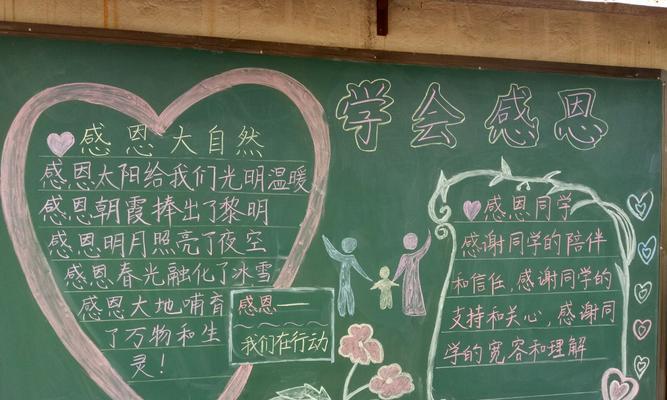 学会感恩
感恩大自然
感恩太阳给我们光明温暖
感恩朝霞捧出了黎明
感恩明月照亮了夜空
感恩春光融化了冰雪
感恩大地哺育
了万物和生
灵！
感恩——
我们在行动
感恩同学
感谢同学的陪伴
和信任，感谢同学的
支持和关心，感谢同
学的宽容和理解